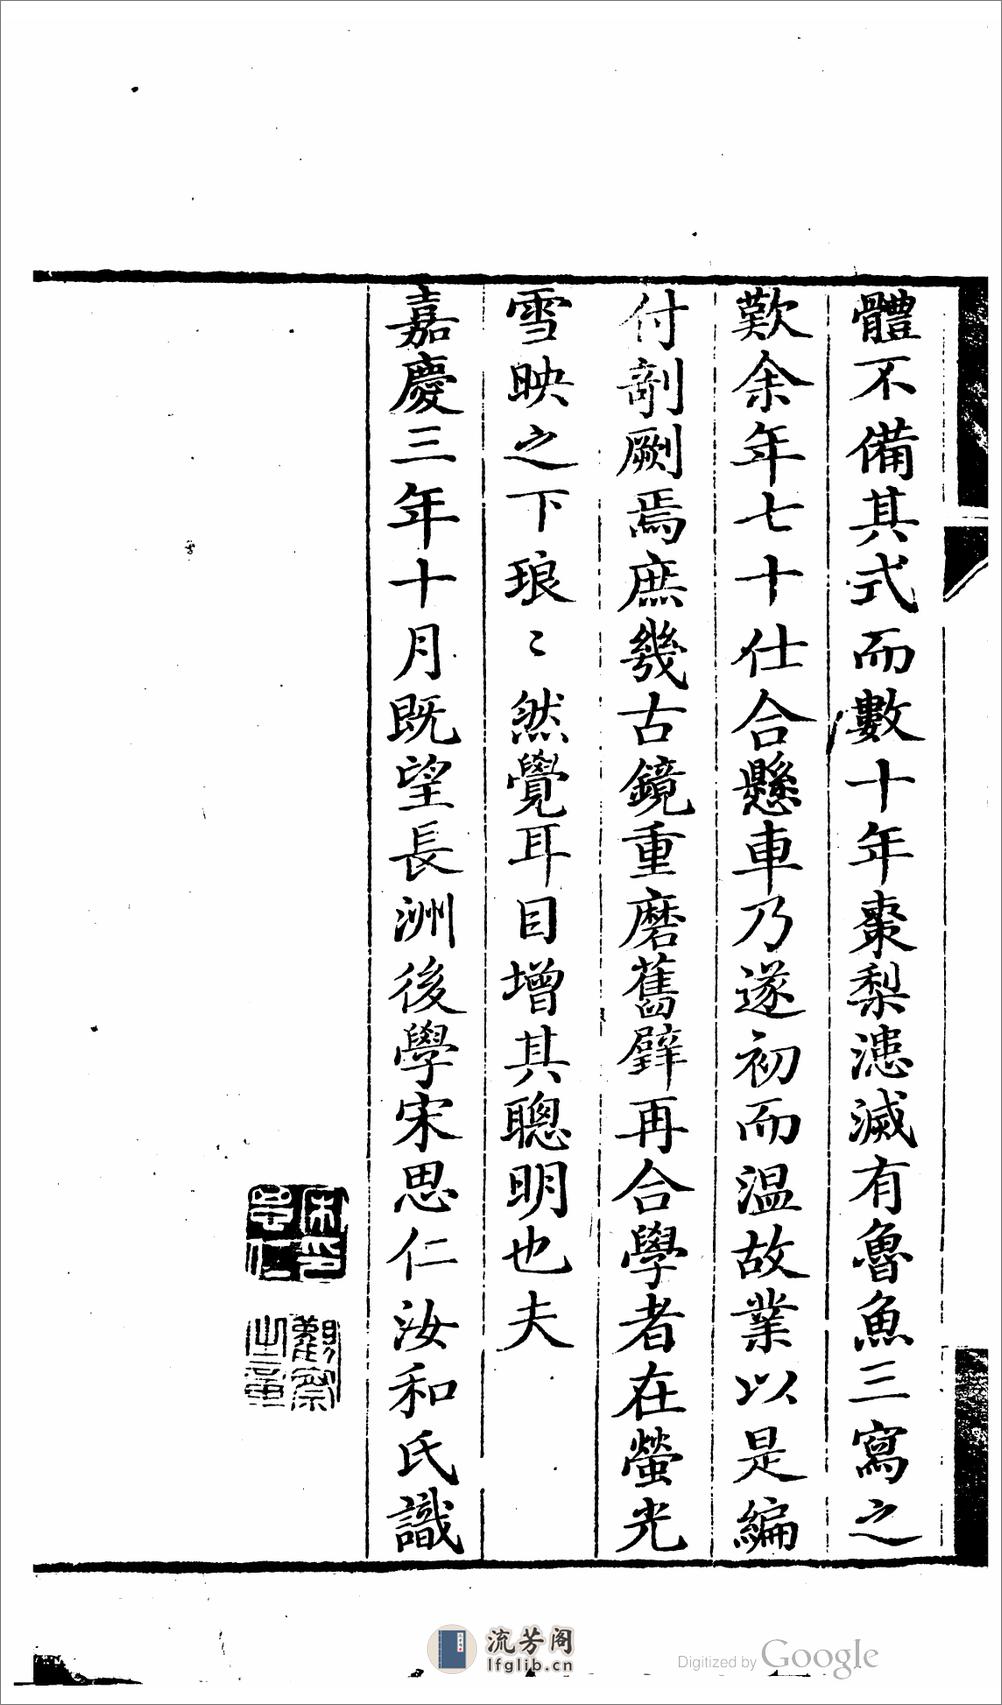 體不備其式而數十年棗梨漶滅有魯魚三寫之
歎余年七十仕合懸車乃遂初而温故業以是編
付剞劂焉庶幾古鏡重磨舊璧再合學者在螢光
雪映之下琅〻然覺耳目增其聰明也夫
嘉慶三年十月既望長洲後學宋思仁汝和氏識
宋印思仁
觀察之章
流芳阁
lfglib.cn
Digitized by Google